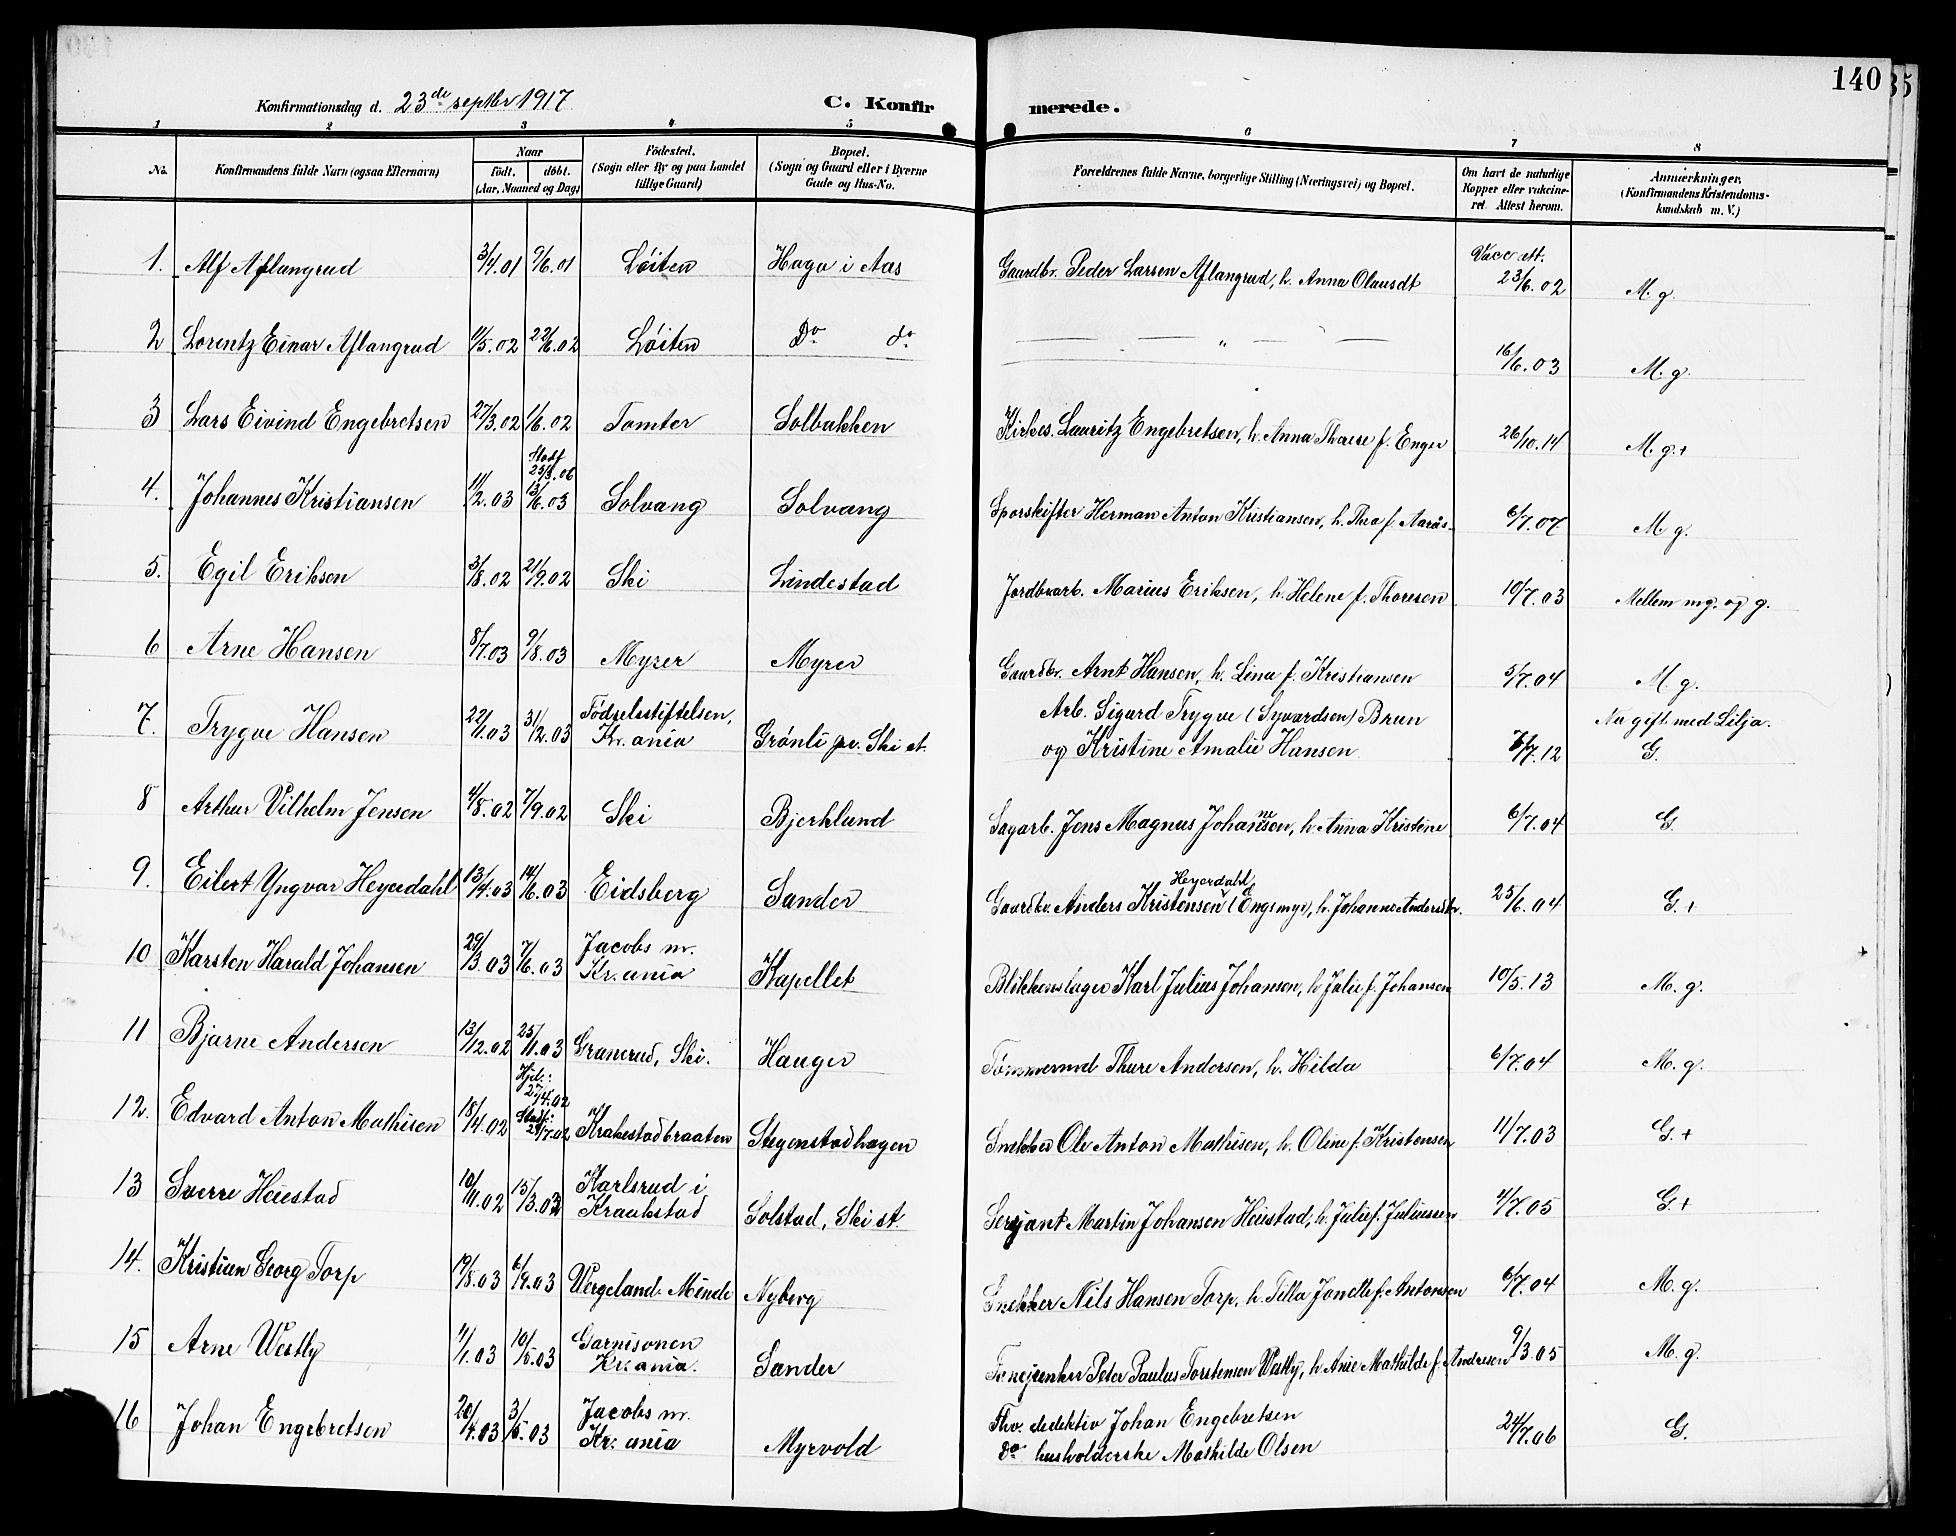 140
Konfirmationsdag d. 23de septbr 1917 C. Konfirmerede.
1 2 3 4 5 6 7 8
No. Konfirmandens fulde Navn (ogsaa Efternavn) Naar født. døbt. (Aar, Maaned og Dag) Fødested. (Sogn eller By og paa Landet tillige Gaard) Bopæl. (Sogn og Gaard eller i Byerne Gade og Hus-No. Forældrenes fulde Navne, borgerlige Stilling (Næringsvei) og Bopæl. Om havt de naturlige Kopper eller vakcineret. Attest herom. Anmærkninger. (Konfirmandens Kristendomskundskab m. V.)
1. Alf Aflangrud 3/4.01 9/6.01 Löiten Haga i Aas Gaardbr. Peder Larsen Aflangrud, h. Anna Olausdt Vacc att. 23/6.02 M. g.
2 Lorentz Einar Aflangrud 11/5.02 22/6.02 Löiten Do do — — „ — — 16/6.03 M. g.
3 Lars Eivind Engebretsen 27/3.02 1/6.02 Tomter Solbakken Kirkes. Lauritz Engebretsen, h. Anna Therese f. Enger 26/10.14 M. g.+
4. Johannes Kristiansen 11/2.03 Stadf 25/3.06 13/6.03 Solvang Solvang Sporskifter Herman Anton Kristiansen, h. Thea f. Aarås 6/7.07 M. g.
5. Egil Eriksen 3/8.02 21/9.02 Ski Lindestad Jordbrarb. Marius Eriksen, h. Helene f. Thoresen 10/7.03 Mellem mg. og g.
6 Arne Hansen 8/7.03 9/8.03 Myrer Myrer Gaardbr. Arnt Hansen, h. Lina f. Kristiansen 5/7.04 M. g.
7. Trygve Hansen 22/1.03 31/12.03 Födselsstiftelsen, Kr.ania Grønli pr. Ski st. Arb. Sigurd Trygve (Syvardsen) Brun Nu gift med Lilja.
og Kristine Amalie Hansen /7.12 G.
8 Arthur Vilhelm Jensen 4/8.02 7/9.02 Ski Bjerklund Sagarb. Jens Magnus Johannesen, h. Anna Kristine 6/7.04 G.
9. Eilert Yngvar Heyerdahl 13/4.03 14/6.03 Eidsberg Sander Gaardbr. Anders Kristensen Heyerdahl (Engsmyr), h. Johanne Andersdtr. 25/6.04 G.+
10 Karsten Harald Johansen 29/3.03 7/6.03 Jacobs m. Kr.ania Kapellet Blikkenslager Karl Julius Johansen, h Julie f. Johansen 10/5.13 M. g.
11 Bjarne Andersen 13/12.02 25/11.03 Granerud, Ski. Hauger Tömmermd Thure Andersen, h. Hilda 6/7.04 M. g.
12. Edvard Anton Mathisen 18/4.02 Hjd.: 27/4.02 Stadf: 2/7.02 Krakestadbraaten Stegenstadhagen Snekker Ole Anton Mathisen, h. Oline f. Kristensen 11/7.03 G.+
13 Sverre Heiestad 10/11.02 15/3.03 Karlsrud i Kraakstad Solstad, Ski st. Serjant Martin Johansen Heiestad, h. Julie f. Juliussen 4/7.05 G+
14. Kristian Georg Torp 19/8.03 6/9.03 Vergeland. Minde Nyberg Snekker Nils Hansen Torp, h. Tilla Jonette f. Antonsen 6/7.04 M. g.
15 Arne Westly 4/1.03 10/5.03 Garnisonen Kr.ania. Sander Peter Paulus Torstensen Westly, h Anie Mathilde f. Andresen 9/3.05 M. g.
16 Johan Engebretsen 20/4.03 3/5.03 Jacobs m. Kr.ania Myrvold Fhv. dedektiv Johan Engebretsen
do husholderske Mathilde Olsen 24/7.06 G.